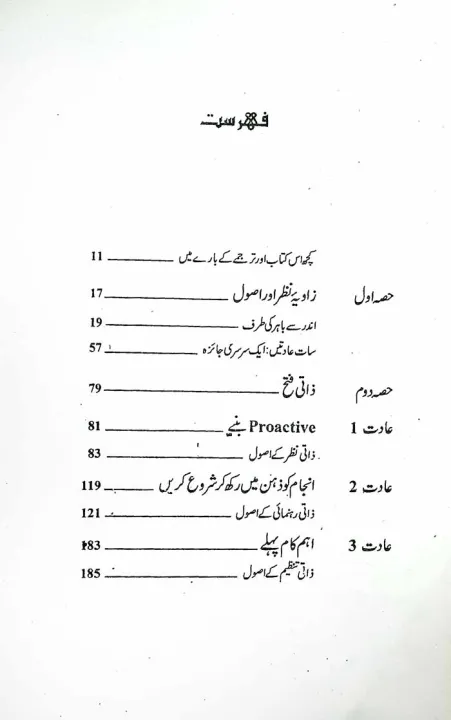 فہرست
کچھ اس کتاب اور ترجمے کے بارے میں 11
حصہ اول زاویۂ نظر اور اصول 17
اندر سے باہر کی طرف 19
سات عادتیں: ایک سرسری جائزہ 57
حصہ دوم ذاتی فتح 79
عادت 1 Proactive بنیے 81
ذاتی نظر کے اصول 83
عادت 2 انجام کو ذہن میں رکھ کر شروع کریں 119
ذاتی رہنمائی کے اصول 121
عادت 3 اہم کام پہلے 183
ذاتی تنظیم کے اصول 185